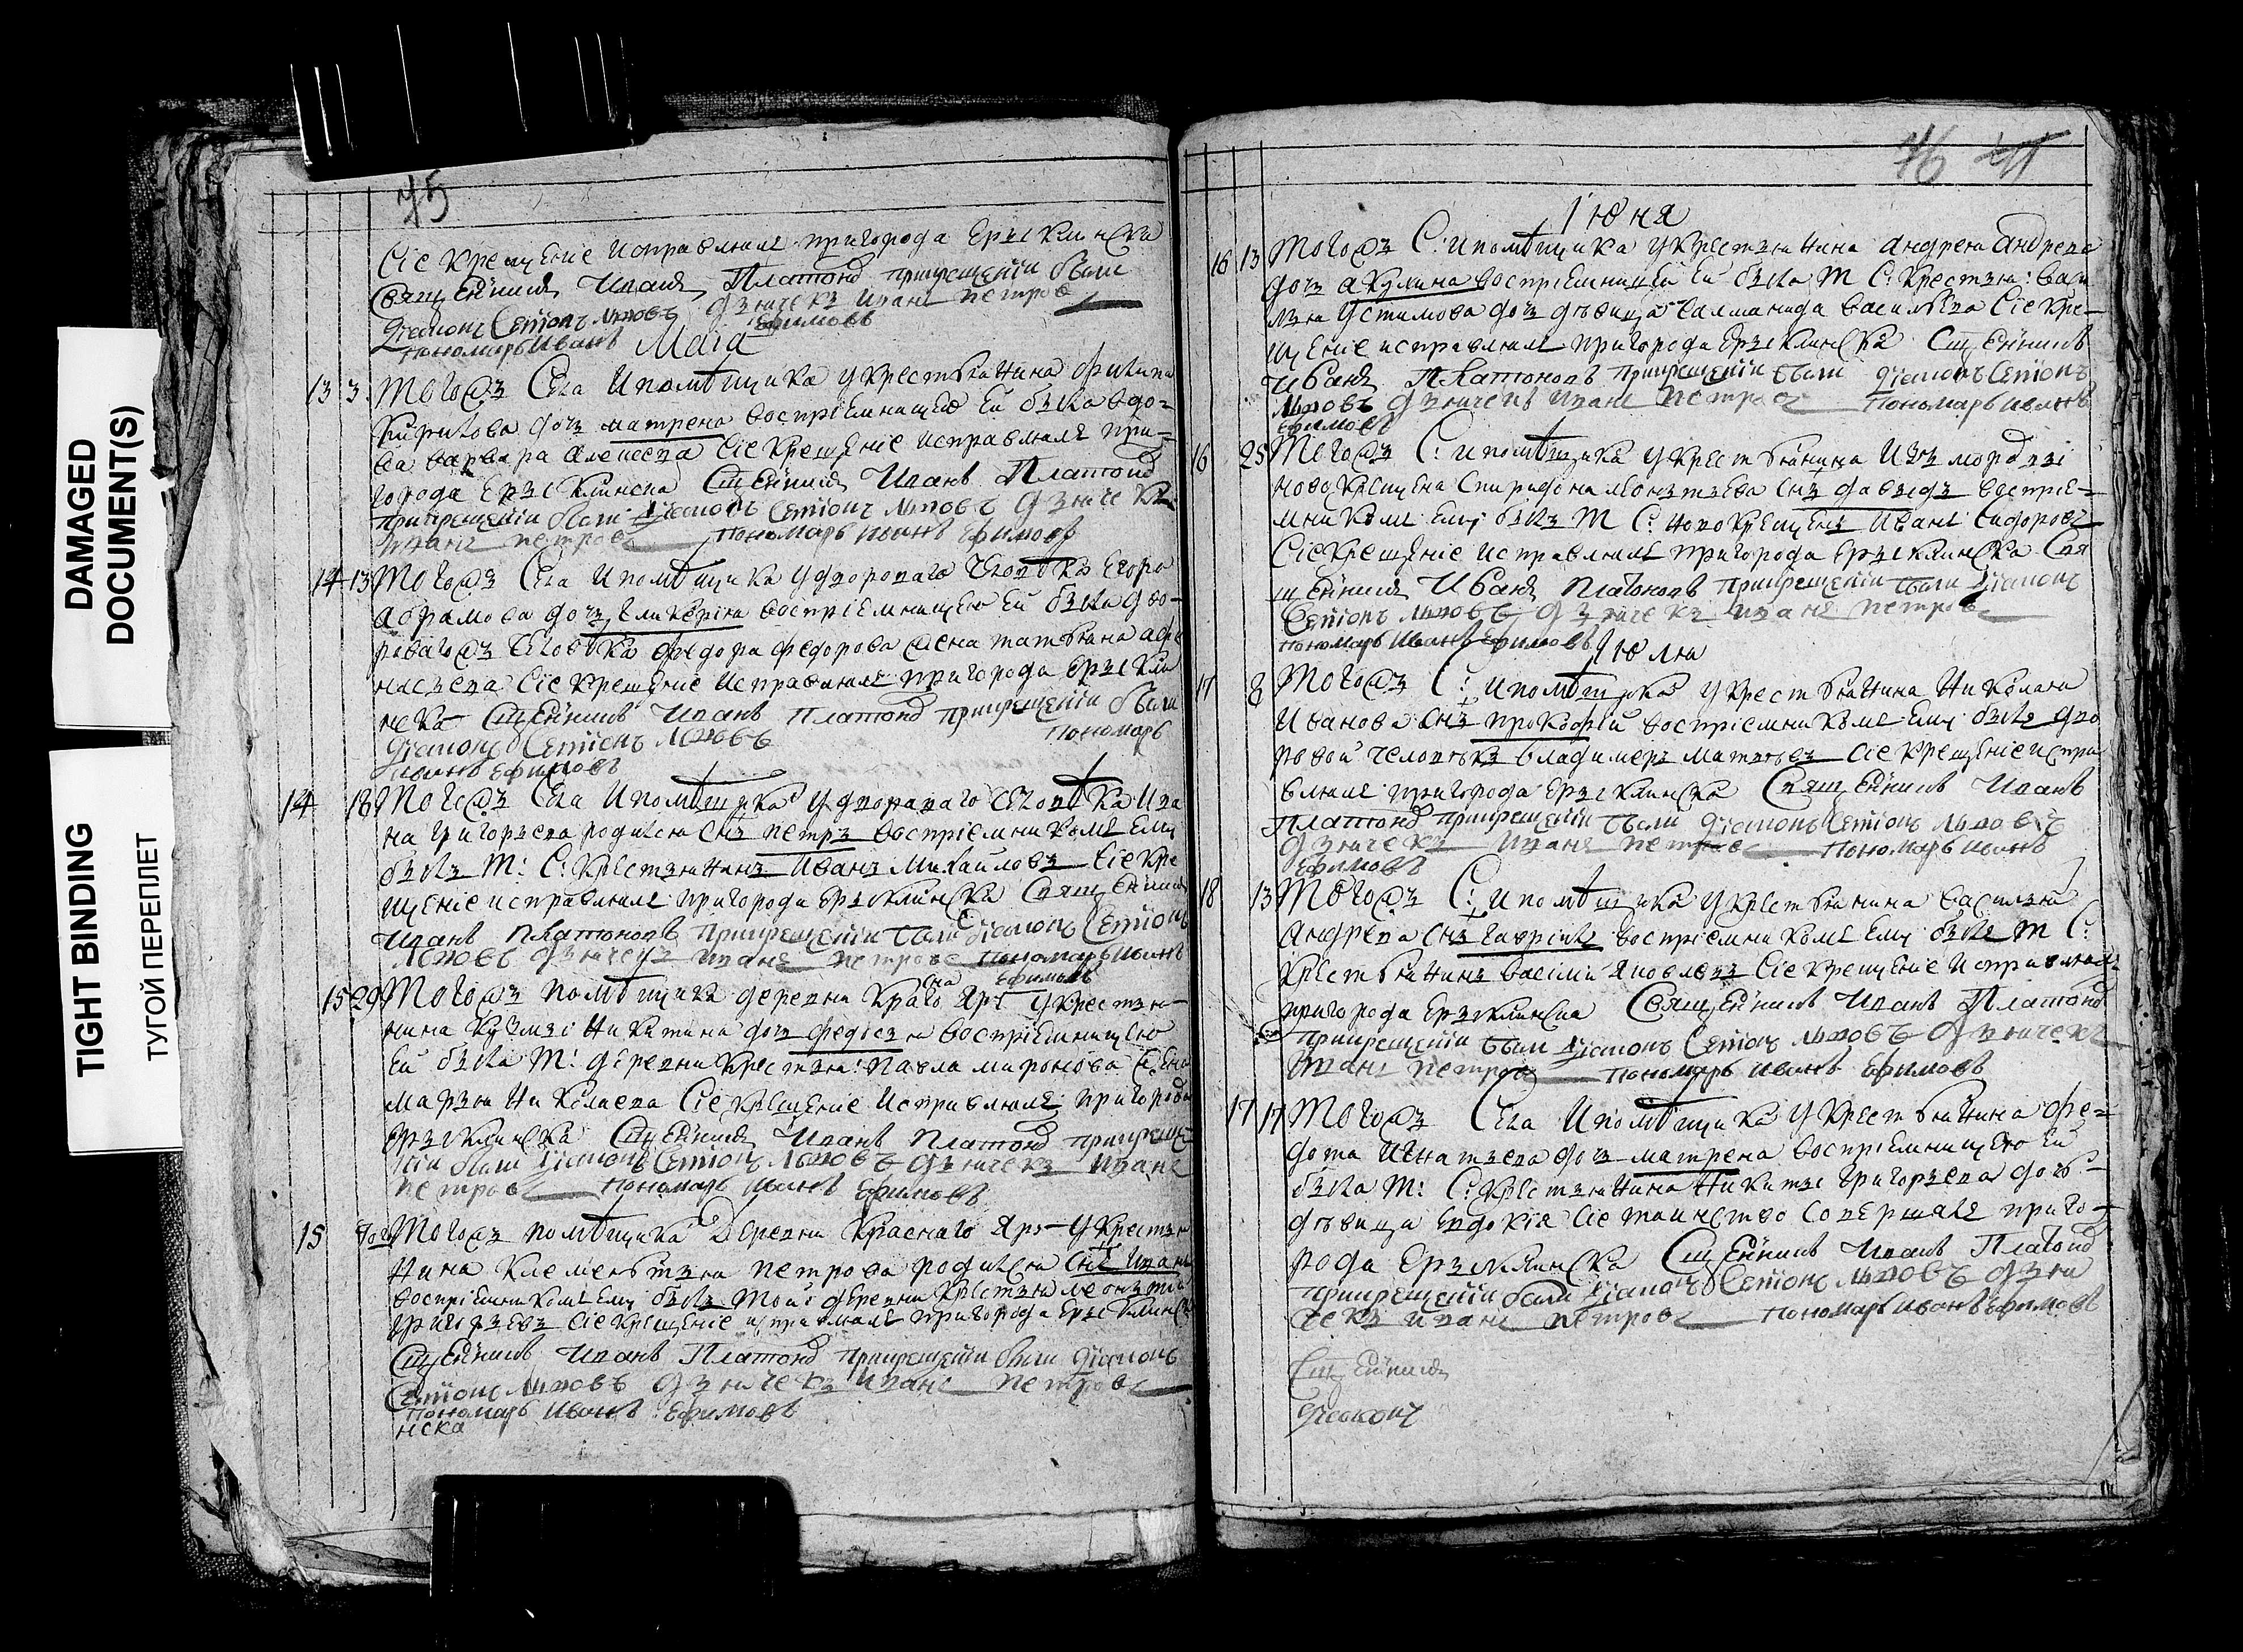 DAMAGED
DOCUMENT(S)
TIGHT BINDING
ТУГОЙ ПЕРЕПЛЕТ
75
Сіе крещеніе исправлялъ пригорода Ерыклинска
Священникъ Иванъ Платоновъ прикрещеніи были
діаконъ Семіонъ Львовъ дьячекъ Иванъ Петровъ
пономарь Иванъ Ефимовъ
Маіа
13 3 Тогожъ Села ипомѣщика укрестьянина филипа
Кирилова дочь матрена воспріемницею ей была вдо-
ва варвара алексева сіе крещеніе исправлялъ при-
города Ерыклинска Сщенникъ Иванъ Платоновъ
прикрещеніи были діаконъ Семіонъ Львовъ дьячекъ
Иванъ петровъ пономарь иванъ Ефимовъ
14 13 Тогожъ Села ипомѣщика удвороваго человѣка егора
абрамова дочь гликерія воспріемницею ей была дво-
роваго человѣка федора федорова жена татьяна
сіе крещеніе исправлялъ пригорода Ерыкли
нска Сщенникъ Иванъ Платоновъ прикрещеніи были
діаконъ Семіонъ Львовъ пономарь
иванъ ефимовъ
14 18 Тогожъ Села ипомѣщика удвораваго человѣка ива
на григорьева родился снъ петръ воспріемникомъ ему
былъ т: С: крестьянинъ иванъ михаиловъ сіе кре
щеніе исправлялъ пригорода Ерыклинска Священникъ
Иванъ Платоновъ прикрещеніи были діаконъ Семіонъ
Львовъ дьячекъ иванъ петровъ пономарь иванъ
ефимовъ
15 29 Тогожъ помѣщика деревни Краснаго Яру укрестья-
нина кузмы никитина дочь федосья воспріемницею
ей была т: деревни крестьян: павла миронова жена
марья николаева сіе крещеніе исправлялъ пригорода
Ерыклинска Сщенникъ Иванъ Платоновъ прикреще-
ніи были діаконъ Семіонъ Львовъ дьячекъ иванъ
петровъ пономарь иванъ ефимовъ
15 Тогожъ помѣщика деревни краснаго Яру укрестья
нина клементья петрова родился снъ иванъ
воспріемникомъ ему былъ той деревни крестьян
григорьевъ сіе крещеніе исправлялъ пригорода Ерыкли
Сщенникъ Иванъ Платоновъ прикрещеніи были діаконъ
Семіонъ Львовъ дьячекъ иванъ петровъ
пономарь иванъ ефимовъ
нска
76
Іюня
16 13 Тогожъ С: ипомѣщика укрестьянина андрея андреева
дочь акулина воспріемницей ей была т С: крестьян: васи
лья устимова дочь дѣвица васильева сіе кре-
щеніе исправлялъ пригорода Ерыклинска Сщенникъ
Иванъ Платоновъ прикрещеніи были діаконъ Семіонъ
Львовъ дьячекъ иванъ петровъ пономарь иванъ
ефимовъ
16 25 Тогожъ С: ипомѣщика укрестьянина изъ мордвы
новокрещена спиридона леонтьева снъ давыдъ воспріе-
мникомъ ему былъ т С: новокрещенъ иванъ сидоровъ
сіе крещеніе исправлялъ пригорода Ерыклинска Свя
щенникъ Иванъ Платоновъ прикрещеніи были діаконъ
Семіонъ Львовъ дьячекъ иванъ петровъ
пономарь иванъ ефимовъ Июля
17 8 Тогожъ С: ипомѣщика укрестьянина николая
иванова снъ прокофій воспріемникомъ ему былъ дво
ровой человѣкъ владимеръ матвѣевъ сіе крещеніе испра
влялъ пригорода Ерыклинска Священникъ Иванъ
Платоновъ прикрещеніи были діаконъ Семіонъ Львовъ
дьячекъ иванъ петровъ пономарь иванъ
ефимовъ
18 13 Тогожъ С: ипомѣщика укрестьянина василья
андрева снъ гаврилъ воспріемникомъ ему былъ т С:
крестьянинъ василій яковлевъ сіе крещеніе исправлялъ
пригорода Ерыклинска Священникъ Иванъ Платоновъ
прикрещеніи были діаконъ Семіонъ Львовъ дьячекъ
иванъ петровъ пономарь иванъ ефимовъ
17 17 Тогожъ Села ипомѣщика укрестьянина фе-
дота игнатьева дочь матрена воспріемницею ей
была т: С: крестьянина никиты григорьева дочь
дѣвица евдокія сіе таинство совершалъ приго-
рода Ерыклинска Сщенникъ Иванъ Платоновъ
прикрещеніи были діаконъ Семіонъ Львовъ дья
чекъ иванъ петровъ пономарь иванъ ефимовъ
Сщенникъ
діаконъ